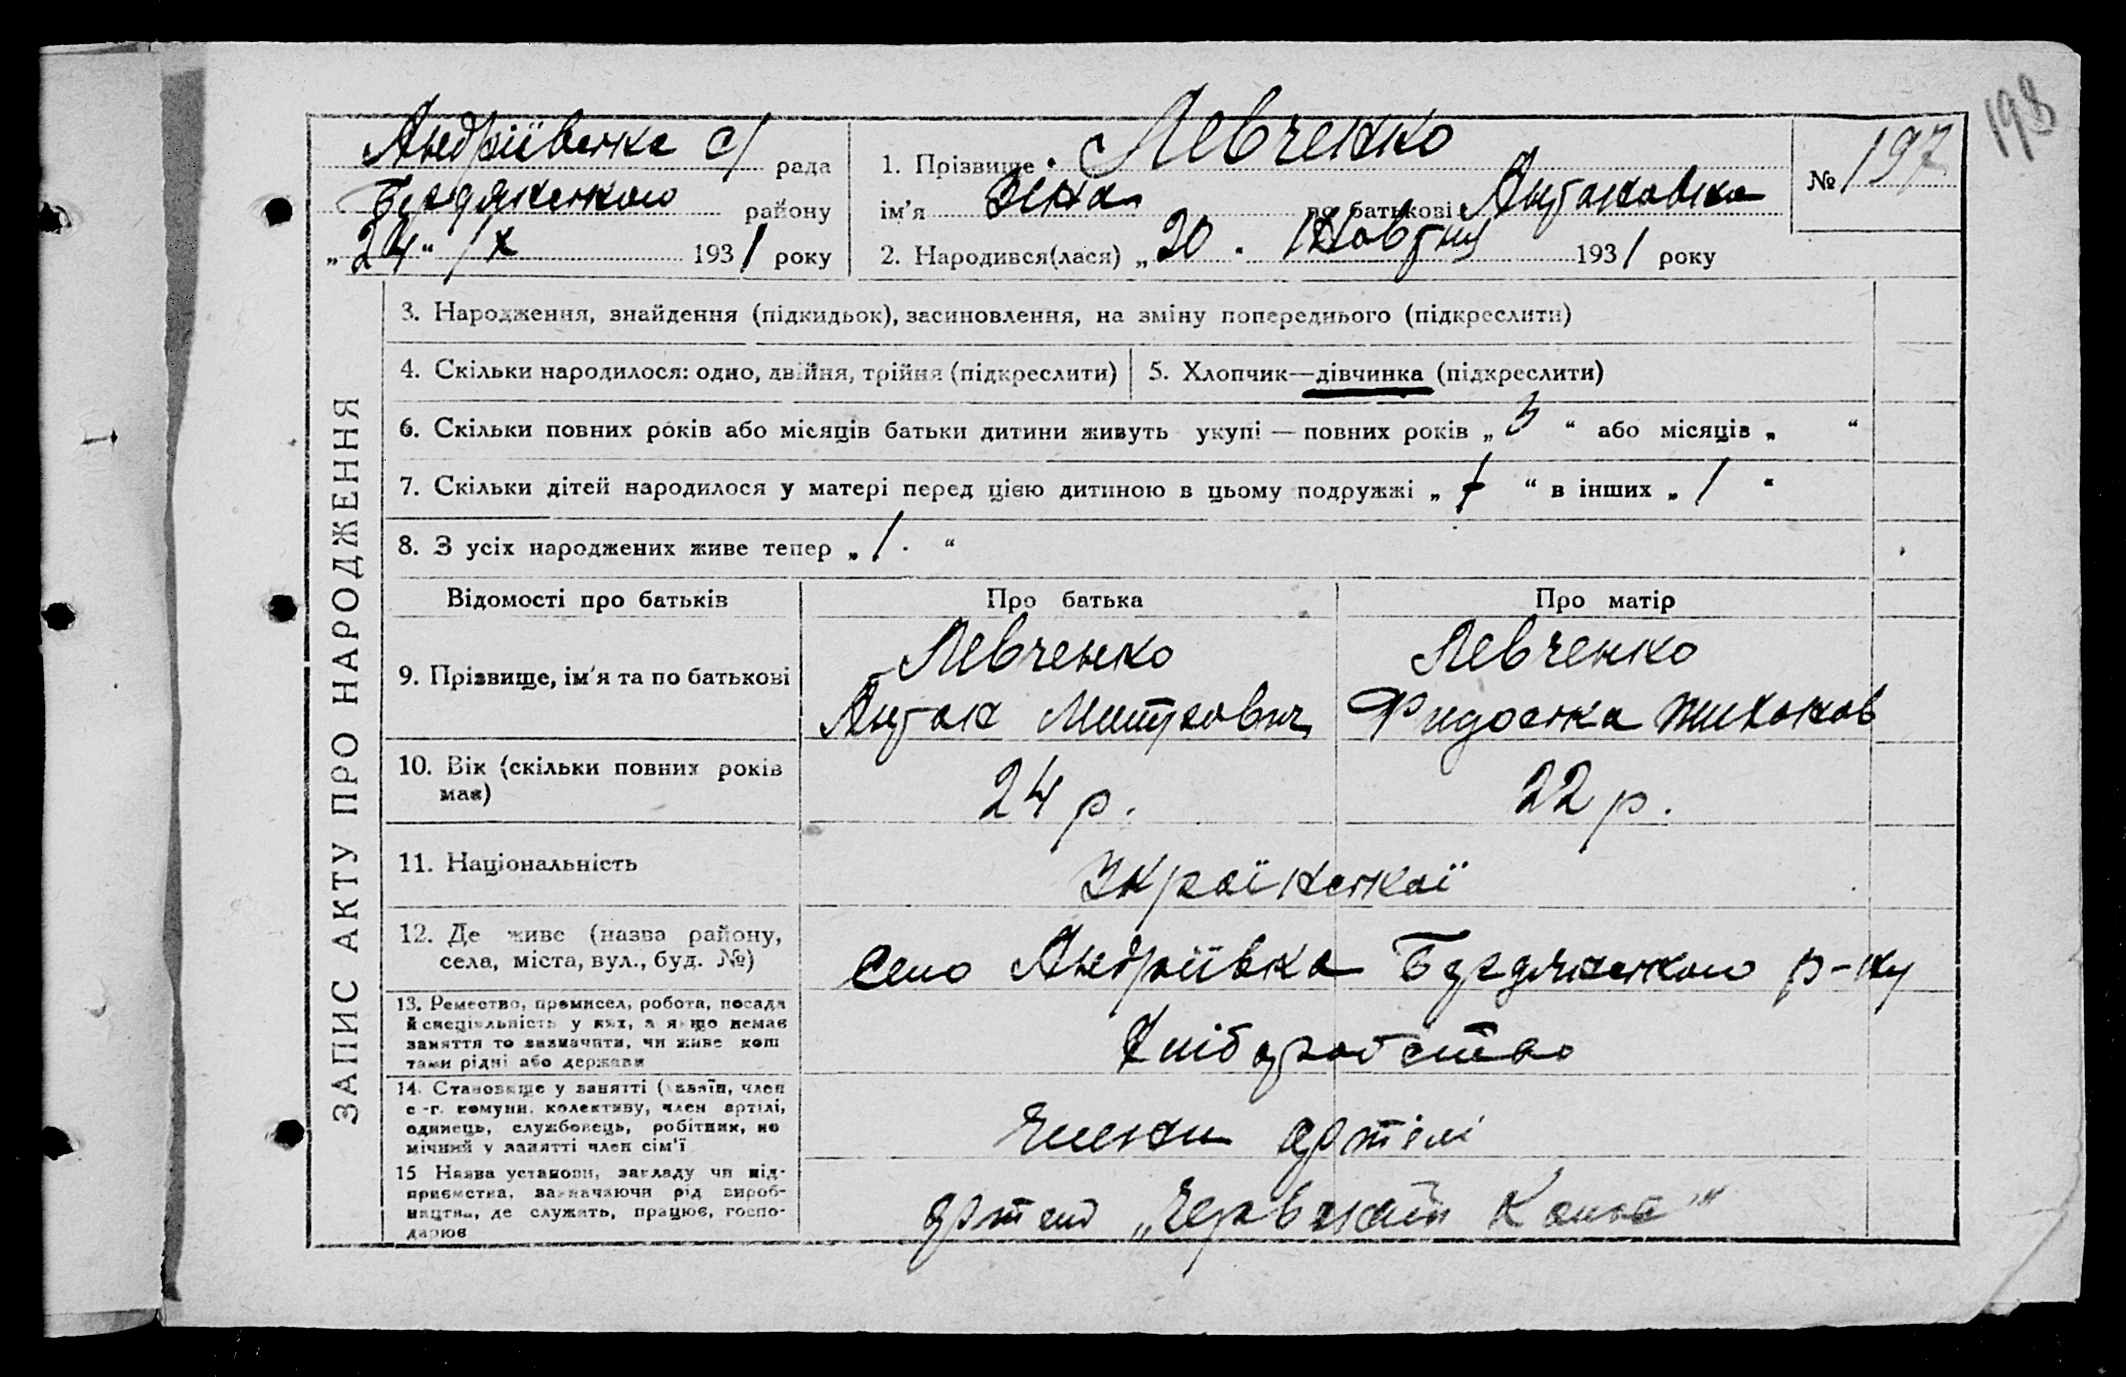 198
Андріївська с/ рада
Бердянського району
„24" / X 1931 року
1. Прізвище Левченко
ім’я Зіна по батькові Антонавна
2. Народився(лася) „20 Жовтня 1931 року
№ 197
ЗАПИС АКТУ ПРО НАРОДЖЕННЯ
3. Народження, знайдення (підкидьок), засиновлення, на зміну попереднього (підкреслити)
4. Скільки народилося: одно, двійня, трійня (підкреслити)
5. Хлопчик—дівчинка (підкреслити)
6. Скільки повних років або місяців батьки дитини живуть укупі — повних років „3“ або місяців „ “
7. Скільки дітей народилося у матері перед цією дитиною в цьому подружжі „ “ в інших „/ “
8. З усіх народжених живе тепер „1. “
Відомості про батьків
Про батька
Про матір
9. Прізвище, ім’я та по батькові
Левченко
Антон Митрович
Левченко
Фидоська Тихонов
10. Вік (скільки повних років має)
24 р.
22 р.
11. Національність
Української
12. Де живе (назва району,
села, міста, вул., буд. №)
село Андріївка Бердянського р-ну
13. Ремество, промисел, робота, посада
й спеціяльність у них, а якщо немає
заняття то зазначити, чи живе кош
тами рідні або держави
Хліборобство
14. Становище у занятті (хазяїн, член
с.-г. комуни, колективу, член артілі,
одинець, службовець, робітник, по
мічний у занятті член сім’ї
Члени артілі
15 Назва установи, закладу чи під-
приємства, зазначаючи рід вироб-
ництва, де служить, працює, госпо-
дарює
артель „Червоний